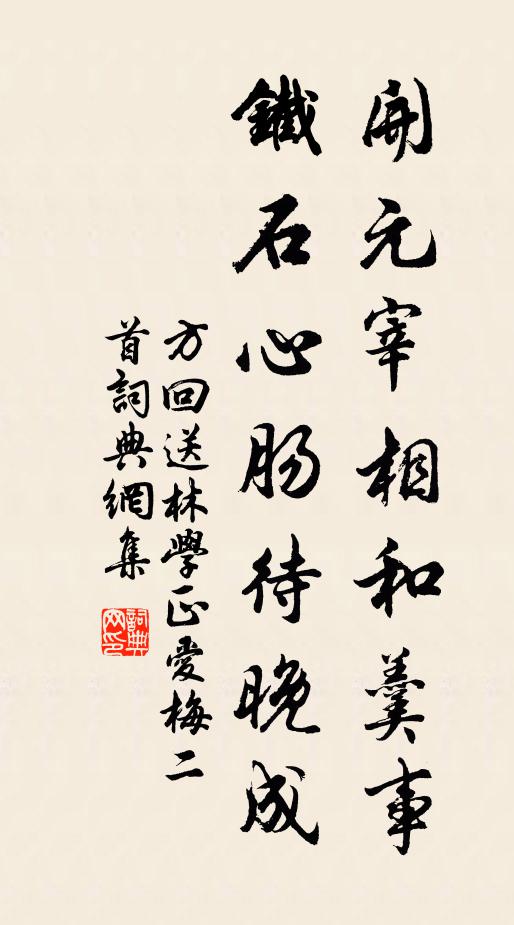 開元宰相和羹事
鐵石心肠待晚成
方回送林學正愛梅二
首詞典網集
詞典
网印